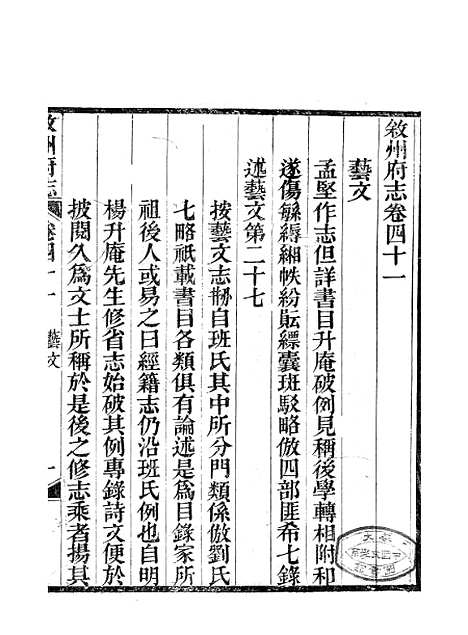 敘州府志卷四十一
藝文
孟堅作志但詳書目升庵破例見稱後學轉相附和
遂傷緐縟緗帙紛貶縹囊班駁略倣四部匪希七錄
述藝文第二十七
按藝文志刱自班氏其中所分門類係倣劉氏
七略祇載書目各類俱有論述是爲目錄家所
祖後人或易之曰經籍志仍沿班氏例也自明
楊升庵先生修省志始破其例專錄詩文便於
披閱久爲文士所稱於是後之修志乘者揚其
敘州府志 卷四十一 藝文 一